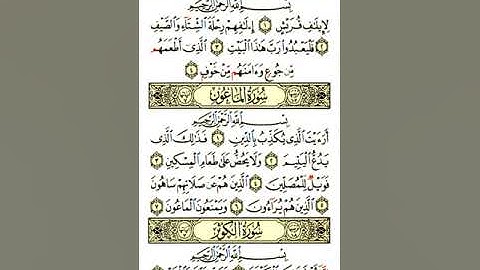 بِسْمِ اللَّهِ الرَّحْمَٰنِ الرَّحِيمِ
لِإِيلَافِ قُرَيْشٍ ١ إِيلَافِهِمْ رِحْلَةَ الشِّتَاءِ وَالصَّيْفِ
٢ فَلْيَعْبُدُوا رَبَّ هَٰذَا الْبَيْتِ ٣ الَّذِي أَطْعَمَهُم
مِّن جُوعٍ وَءَامَنَهُم مِّنْ خَوْفٍ ٤
سُورَةُ المَاعُونِ
بِسْمِ اللَّهِ الرَّحْمَٰنِ الرَّحِيمِ
أَرَءَيْتَ الَّذِي يُكَذِّبُ بِالدِّينِ ١ فَذَٰلِكَ الَّذِي
يَدُعُّ الْيَتِيمَ ٢ وَلَا يَحُضُّ عَلَىٰ طَعَامِ الْمِسْكِينِ ٣
فَوَيْلٌ لِّلْمُصَلِّينَ ٤ الَّذِينَ هُمْ عَن صَلَاتِهِمْ سَاهُونَ
٥ الَّذِينَ هُمْ يُرَاءُونَ ٦ وَيَمْنَعُونَ الْمَاعُونَ ٧
سُورَةُ الكَوْثَرِ
بِسْمِ اللَّهِ الرَّحْمَٰنِ الرَّحِيمِ